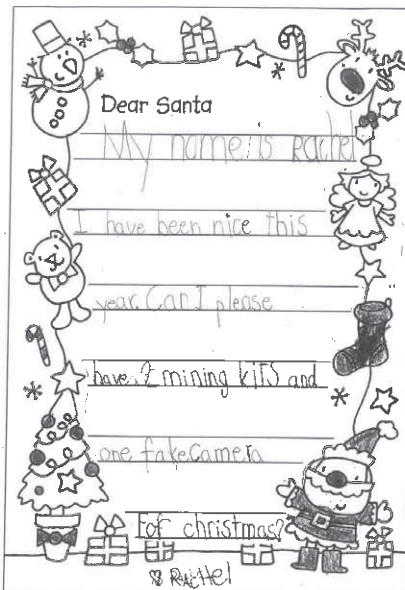 Dear Santa
My name is Rachel
I have been nice this
year. Can I please
have 2 mining kITS and
one fake camera
For christmas?
RacHel